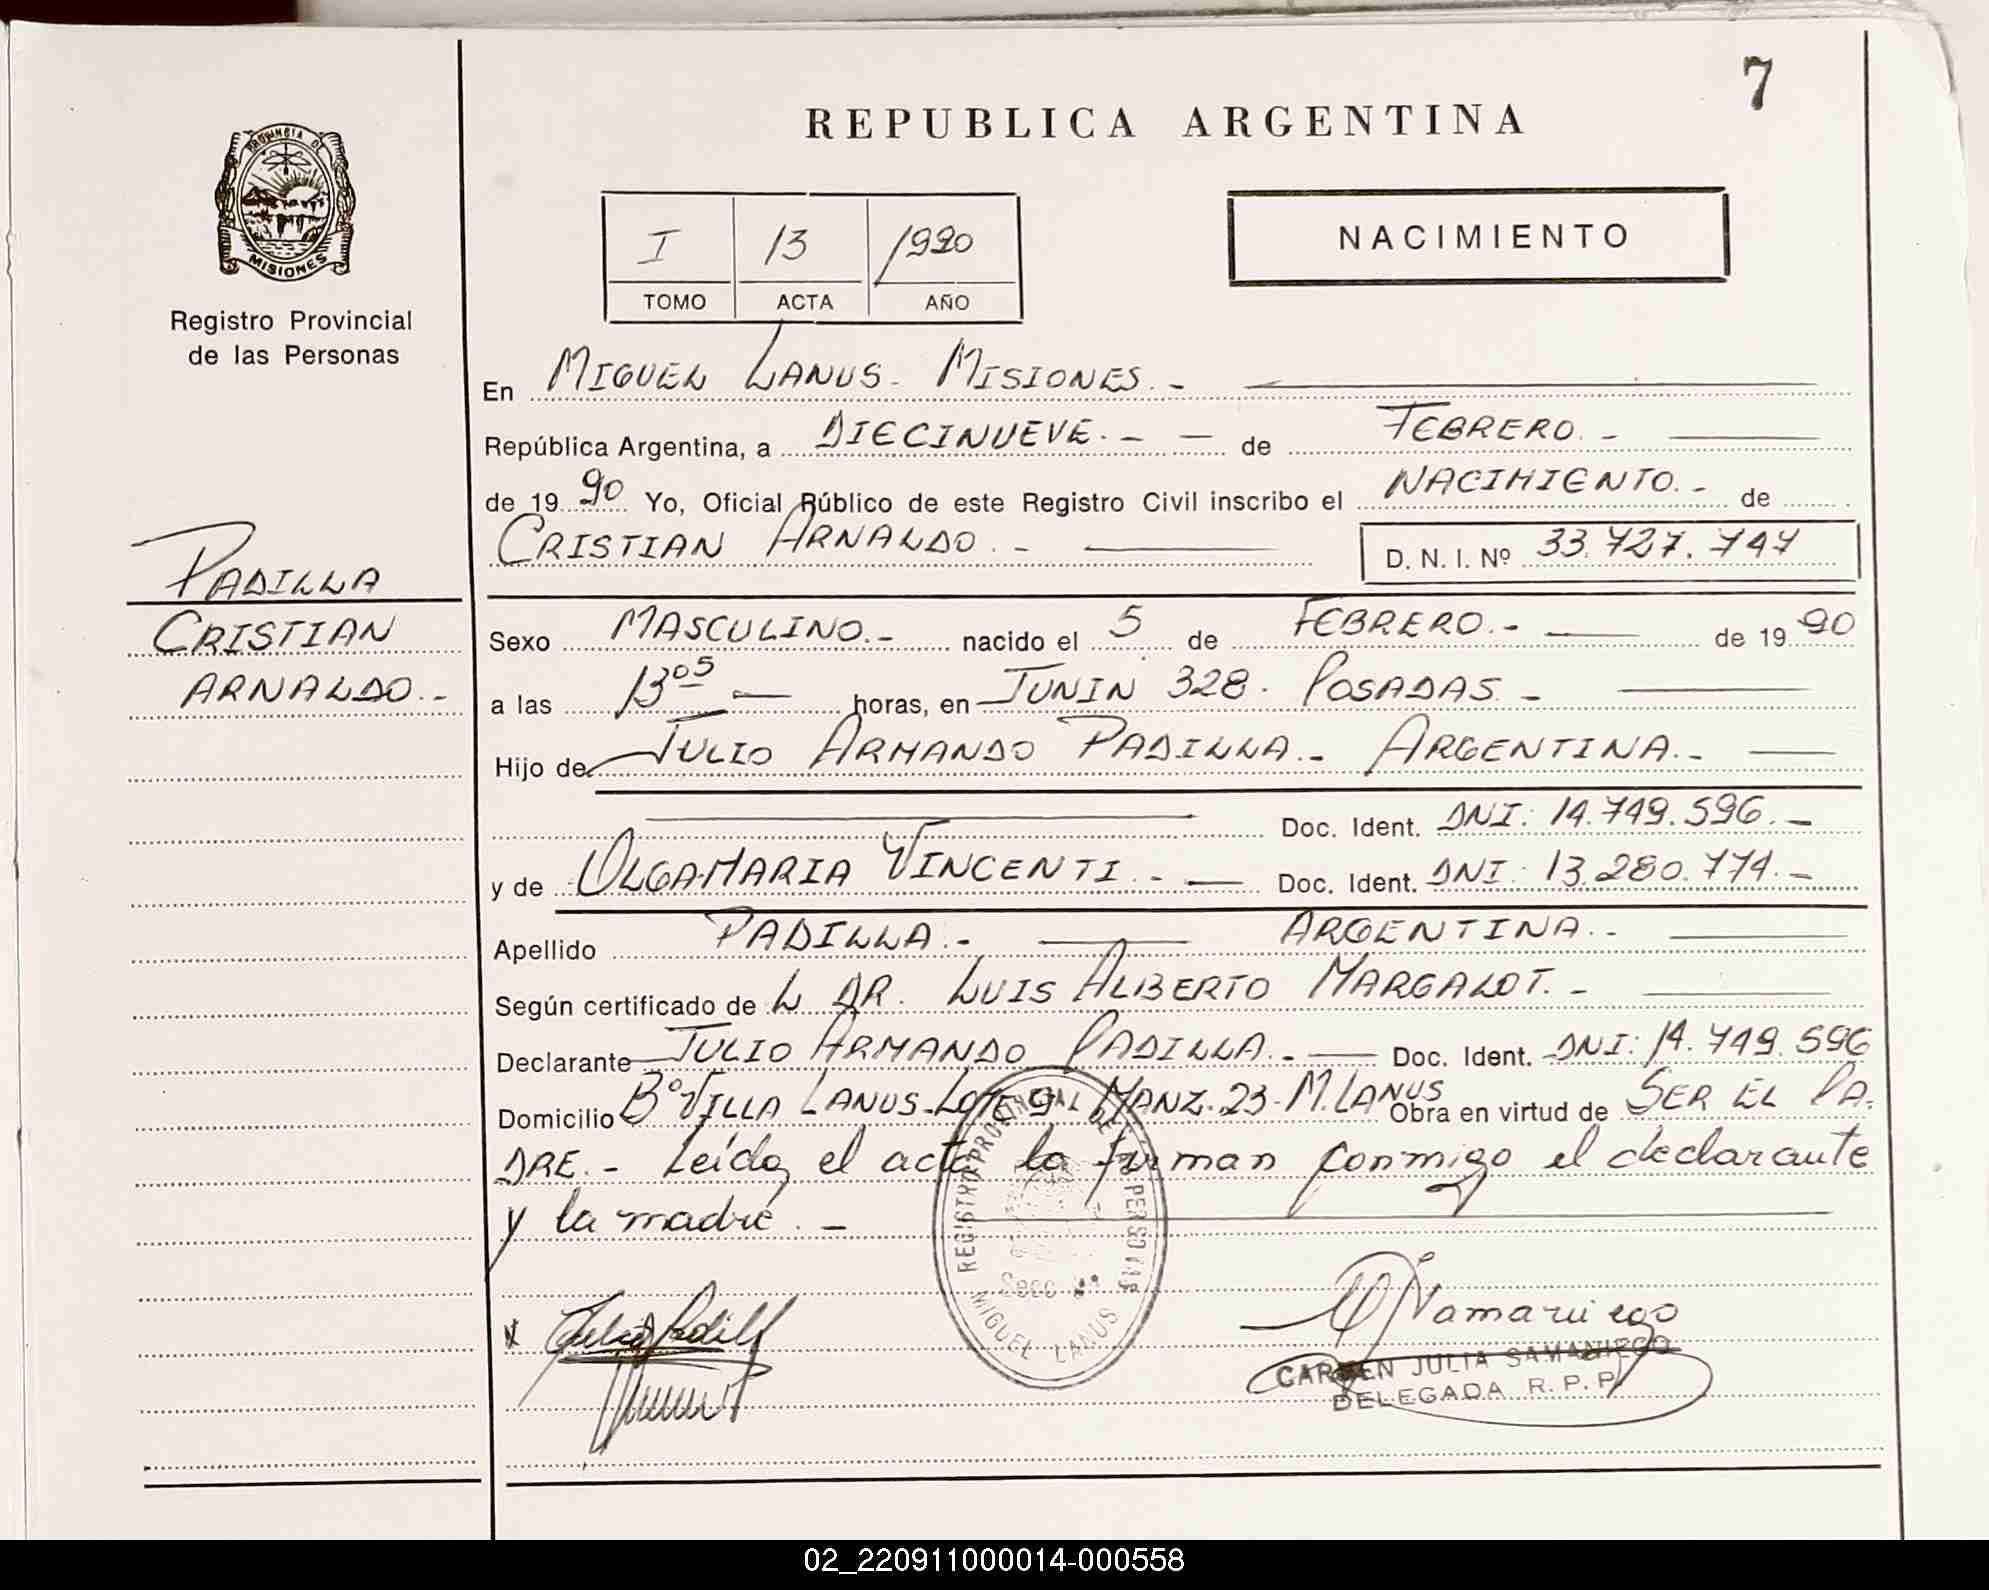 7
REPUBLICA ARGENTINA
PROVINCIA DE
MISIONES
Registro Provincial
de las Personas
I 13 1990
TOMO ACTA AÑO
NACIMIENTO
En MIGUEL LANUS - MISIONES. -
República Argentina, a DIECINUEVE. - - de FEBRERO. -
de 19 90 Yo, Oficial Público de este Registro Civil inscribo el NACIMIENTO. - de
CRISTIAN ARNALDO. - D. N. I. Nº 33.727.747
PADILLA
CRISTIAN
ARNALDO. -
Sexo MASCULINO. - nacido el 5 de FEBRERO. - de 19 90
a las 13 05 horas, en JUNIN 328. POSADAS. -
Hijo de JULIO ARMANDO PADILLA. - ARGENTINA. -
Doc. Ident. DNI: 14.749.596. -
y de OLGA MARIA VINCENTI. - Doc. Ident. DNI: 13.280.774. -
Apellido PADILLA. - ARGENTINA. -
Según certificado de L DR. LUIS ALBERTO MARGALOT. -
Declarante JULIO ARMANDO PADILLA. - Doc. Ident. DNI: 14.749.596
Domicilio Bº VILLA LANUS - LOTE 9 MANZ. 23 - M. LANUS Obra en virtud de SER EL PA-
DRE. - Leída el acta la firman conmigo el declarante
y la madre. -
REGISTRO PROVINCIAL DE LAS PERSONAS
MIGUEL LANUS
CARMEN JULIA SAMANIEGO
DELEGADA R. P. P.
02_220911000014-000558